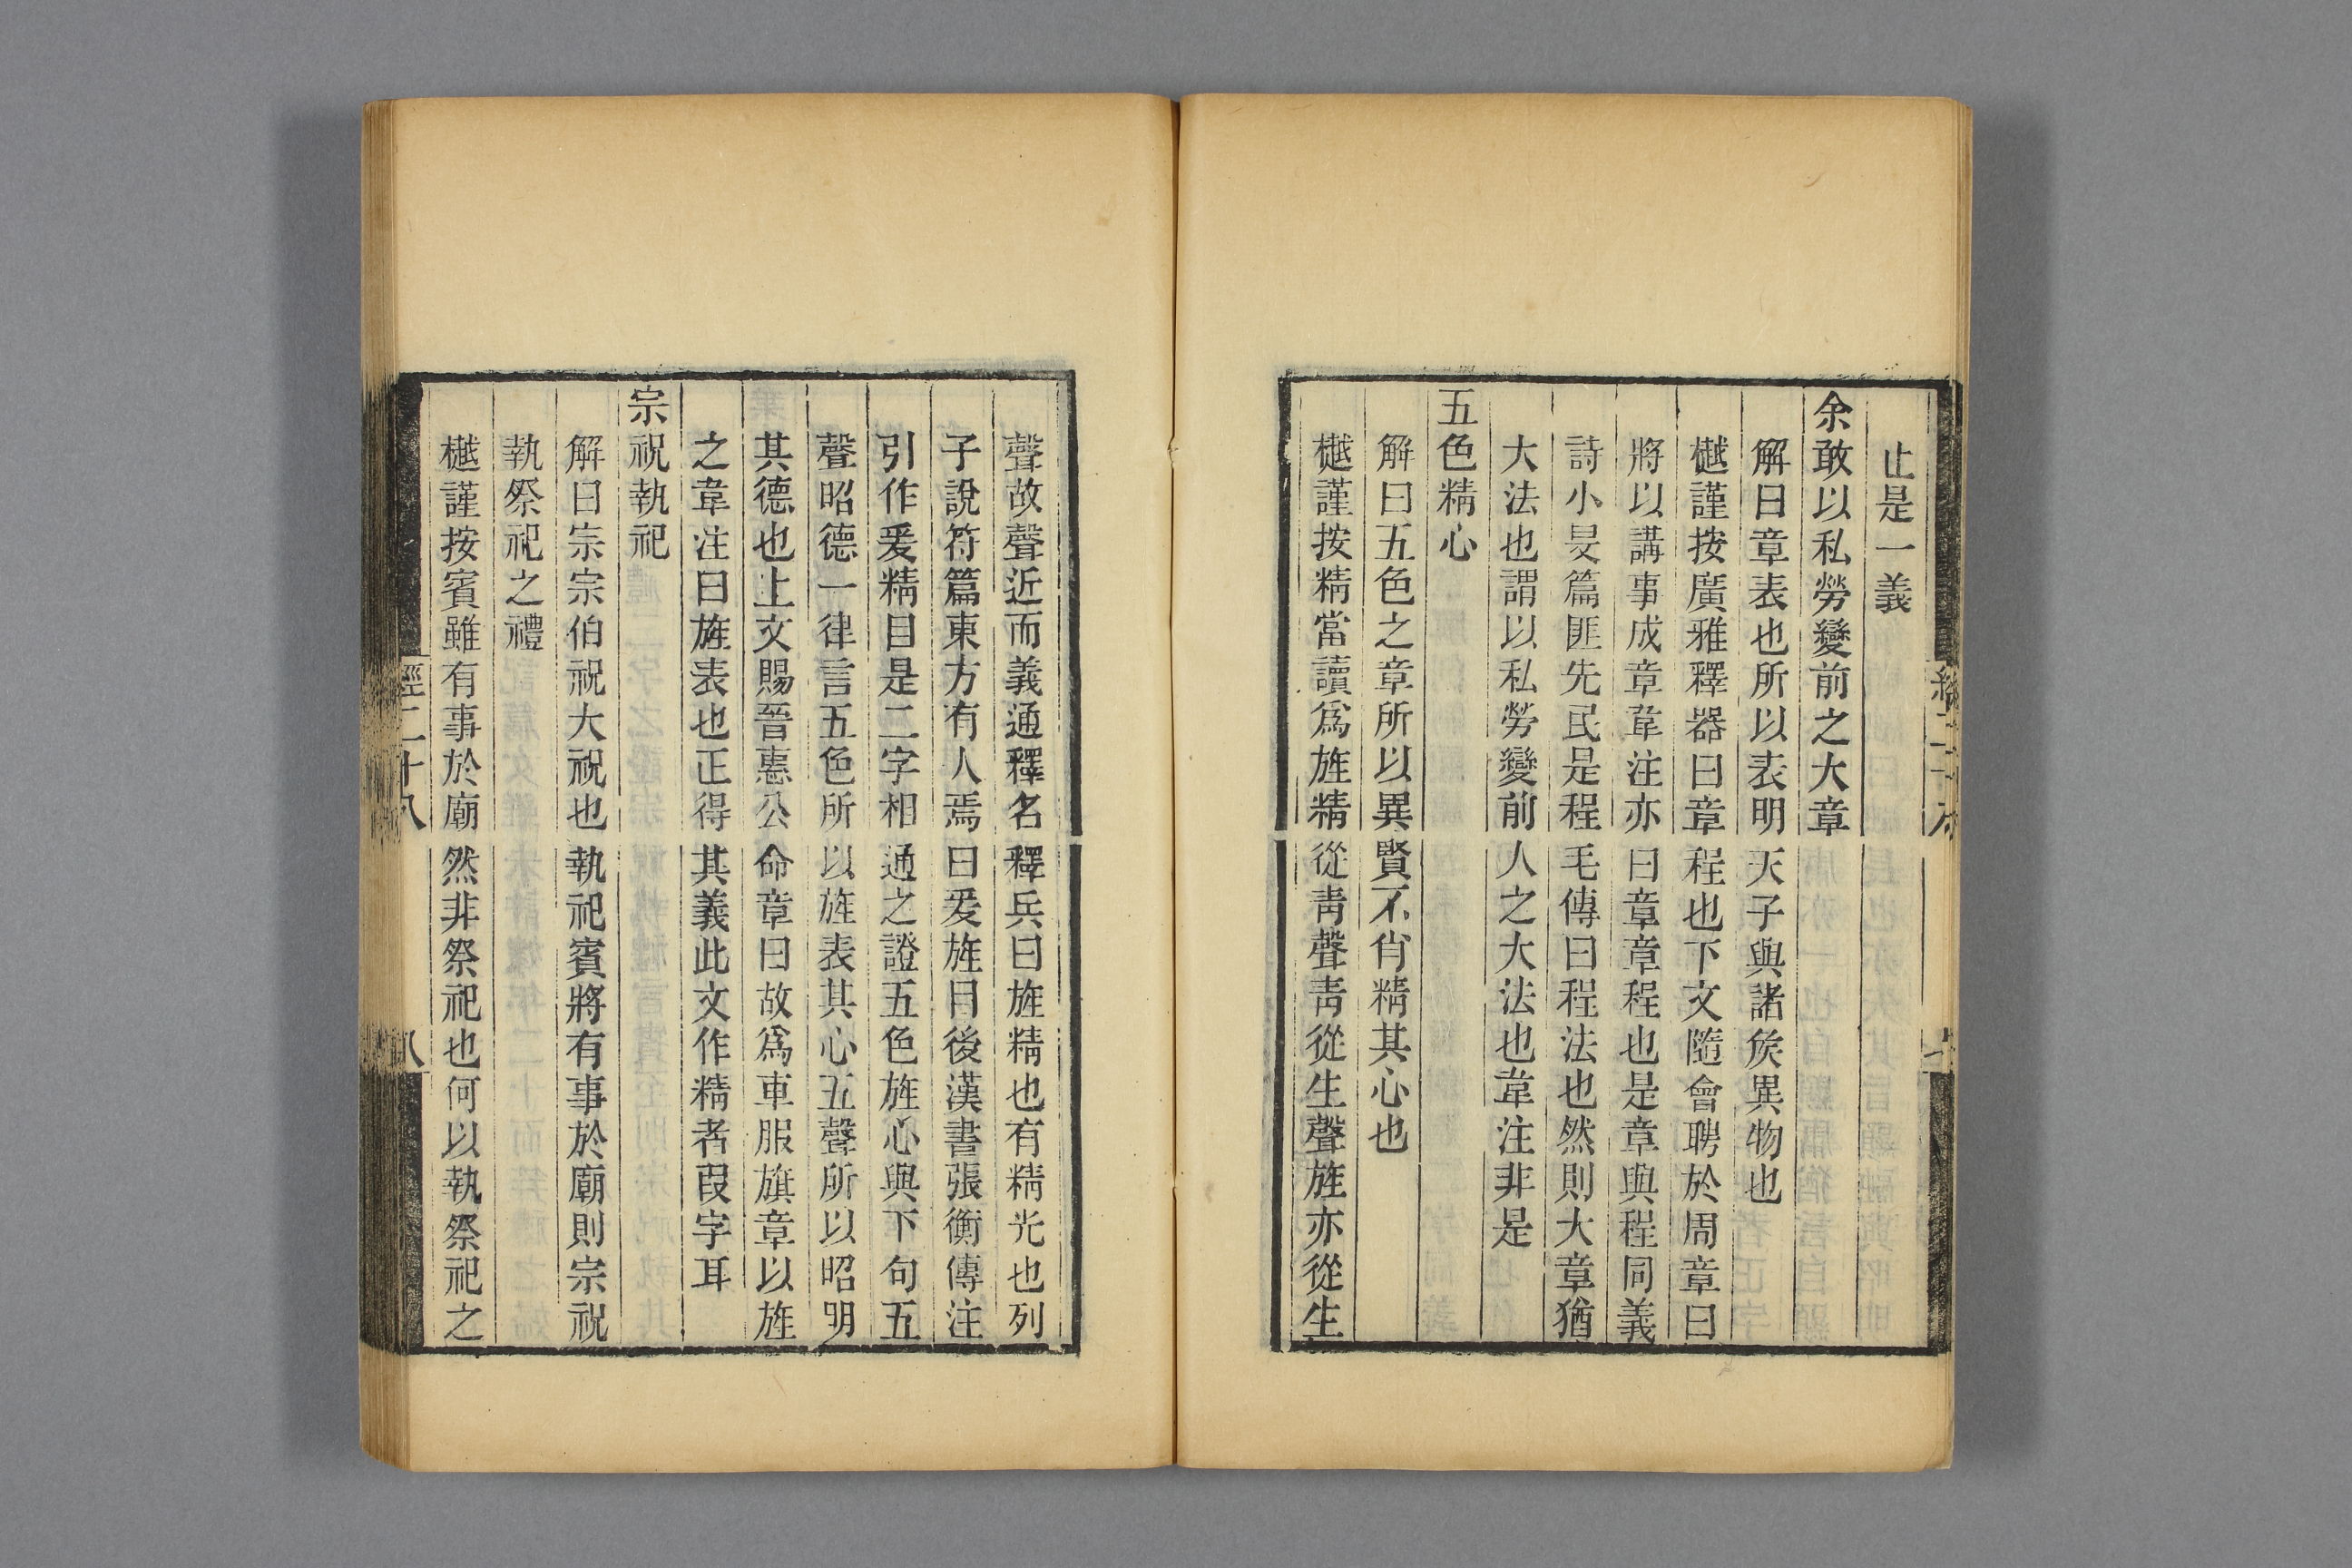 止是一義
余敢以私勞變前之大章
解曰章表也所以表明天子與諸矦異物也
樾謹按廣雅釋器曰章程也下文隨會聘於周章曰
將以講事成章韋注亦曰章章程也是章與程同義
詩小旻篇匪先民是程毛傳曰程法也然則大章猶
大法也謂以私勞變前人之大法也韋注非是
五色精心
解曰五色之章所以異賢不肖精其心也
樾謹按精當讀爲旌精從靑聲靑從生聲旌亦從生
聲故聲近而義通釋名釋兵曰旌精也有精光也列
子說符篇東方有人焉曰爰旌目後漢書張衡傳注
引作爰精目是二字相通之證五色旌心與下句五
聲昭德一律言五色所以旌表其心五聲所以昭明
其德也上文賜晉惠公命章曰故爲車服旗章以旌
之韋注曰旌表也正得其義此文作精者叚字耳
宗祝執祀
解曰宗宗伯祝大祝也執祀賓將有事於廟則宗祝
執祭祀之禮
樾謹按賓雖有事於廟然非祭祀也何以執祭祀之
經二十八
八